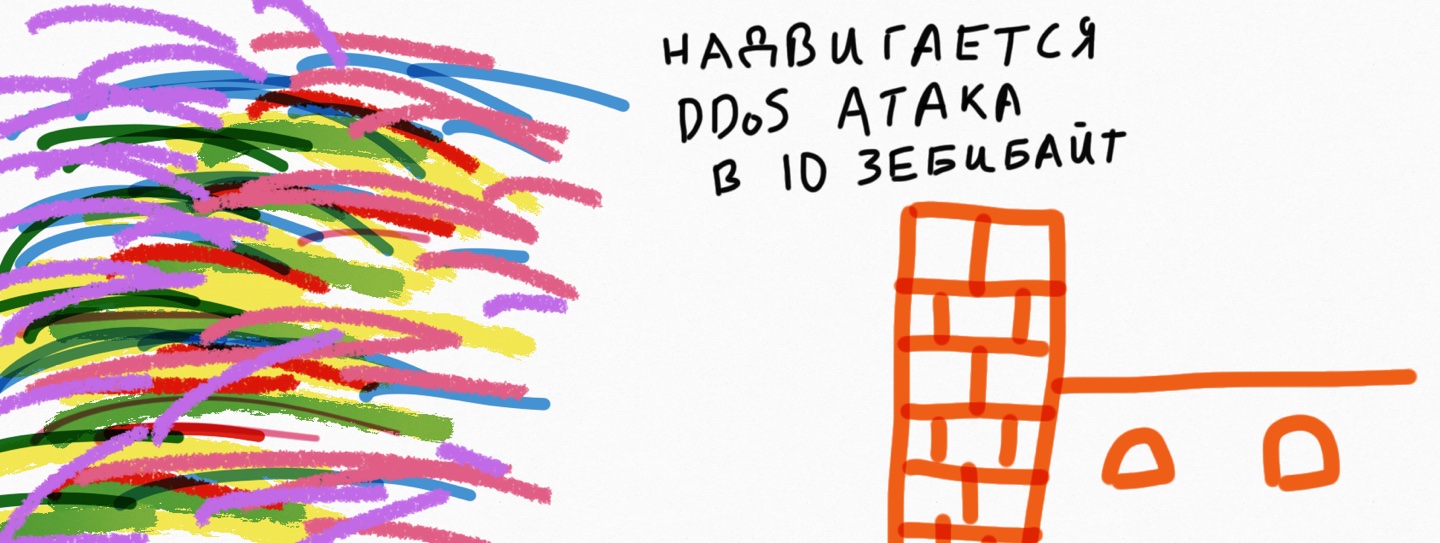 НАДВИГАЕТСЯ
DDoS АТАКА
В 10 ЗЕБИБАЙТ